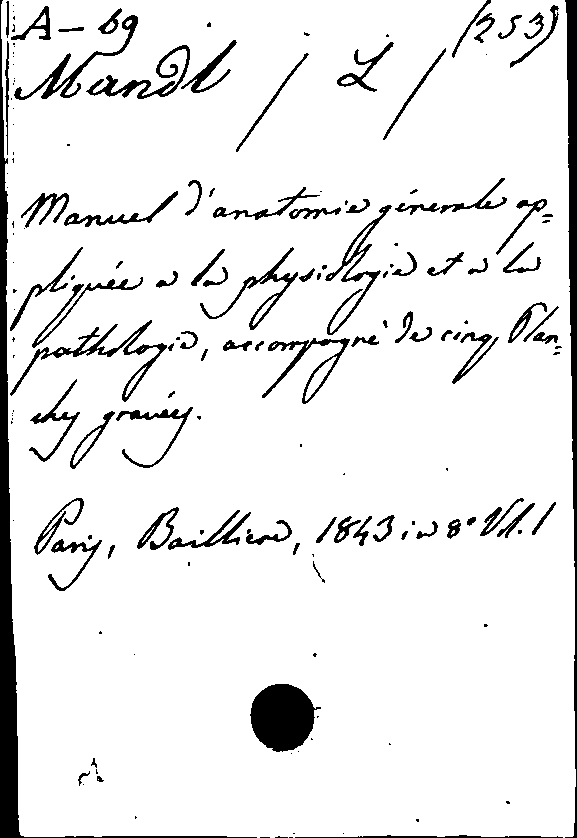 A-69 (253)
Mandl / L /
Manuel d'anatomie génerale ap=
pliquée a la physiologie et a la
pathologie, accompagné de cinq Plan=
ches gravées.
Paris, Bailliere, 1843 in 8° Vol. 1